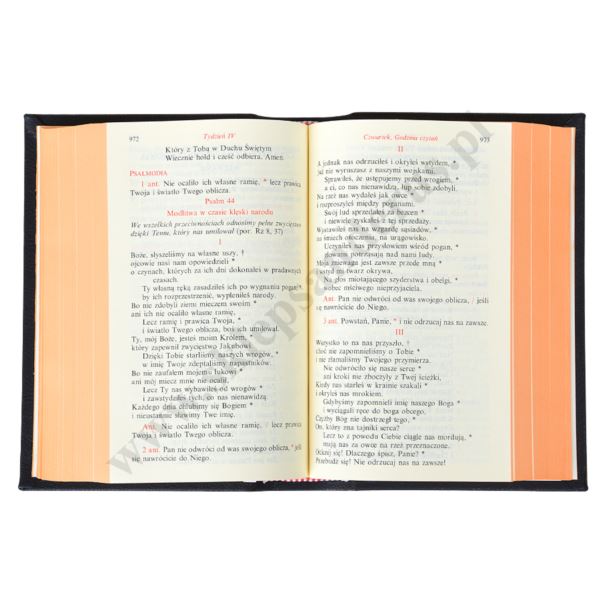 972 Tydzień IV
Który z Tobą w Duchu Świętym
Wiecznie hołd i cześć odbiera. Amen.
PSALMODIA
1 ant. Nie ocaliło ich własne ramię, * lecz prawica
Twoja i światło Twego oblicza.
Psalm 44
Modlitwa w czasie klęski narodu
We wszelkich przeciwnościach odnosimy pełne zwycięstwo
dzięki Temu, który nas umiłował (por. Rz 8, 37)
I
Boże, słyszeliśmy na własne uszy, †
ojcowie nasi nam opowiedzieli *
o czynach, których za ich dni dokonałeś w pradawnych
czasach.
Ty własną ręką zasadziłeś ich po wygnaniu pogan *
by ich rozprzestrzenić, wypleniłeś narody.
Bo nie zdobyli ziemi mieczem swoim *
ani ich nie ocaliło własne ramię,
Lecz ramię i prawica Twoja, *
i światło Twego oblicza, boś ich umiłował.
Ty, mój Boże, jesteś moim Królem, *
który zapewnił zwycięstwo Jakubowi.
Dzięki Tobie starliśmy naszych wrogów, *
w imię Twoje zdeptaliśmy napastników.
Bo nie zaufałem mojemu łukowi *
ani mój miecz mnie nie ocalił.
Lecz Ty nas wybawiłeś od wrogów *
i zawstydziłeś tych, co nas nienawidzą.
Każdego dnia chlubimy się Bogiem *
i nieustannie sławimy Twe imię.
Ant. Nie ocaliło ich własne ramię, / lecz prawica
Twoja i światło Twego oblicza.
2 ant. Pan nie odwróci od was swego oblicza, * jeśli
się nawrócicie do Niego.
Czwartek, Godzina czytań 973
II
A jednak nas odrzuciłeś i okryłeś wstydem, *
już nie wyruszasz z naszymi wojskami.
Sprawiłeś, że ustępujemy przed wrogiem, *
a ci, co nas nienawidzą, łup sobie zdobyli.
Na rzeź nas wydałeś jak owce *
i rozproszyłeś między poganami.
Swój lud sprzedałeś za bezcen *
i niewiele zyskałeś z tej sprzedaży.
Wystawiłeś nas na wzgardę sąsiadów, *
na śmiech otoczenia, na urągowisko.
Uczyniłeś nas przysłowiem wśród pogan, *
głowami potrząsają nad nami ludy.
Moja zniewaga jest zawsze przede mną *
i wstyd twarz okrywa,
Na głos miotającego szyderstwa i obelgi, *
wobec mściwego nieprzyjaciela.
Ant. Pan nie odwróci od was swojego oblicza, / jeśli
się nawrócicie do Niego.
3 ant. Powstań, Panie, * i nie odrzucaj nas na zawsze.
III
Wszystko to na nas przyszło, †
choć nie zapomnieliśmy o Tobie *
i nie złamaliśmy Twojego przymierza.
Nie odwróciło się nasze serce *
ani kroki nie zboczyły z Twej ścieżki,
Kiedy nas starłeś w krainie szakali *
i okryłeś nas mrokiem.
Gdybyśmy zapomnieli imię naszego Boga *
i wyciągali ręce do boga obcego,
Czyżby Bóg nie dostrzegł tego, *
On, który zna tajniki serca?
Lecz to z powodu Ciebie ciągle nas mordują, *
mają nas za owce na rzeź przeznaczone.
Ocknij się! Dlaczego śpisz, Panie? *
Przebudź się! Nie odrzucaj nas na zawsze!